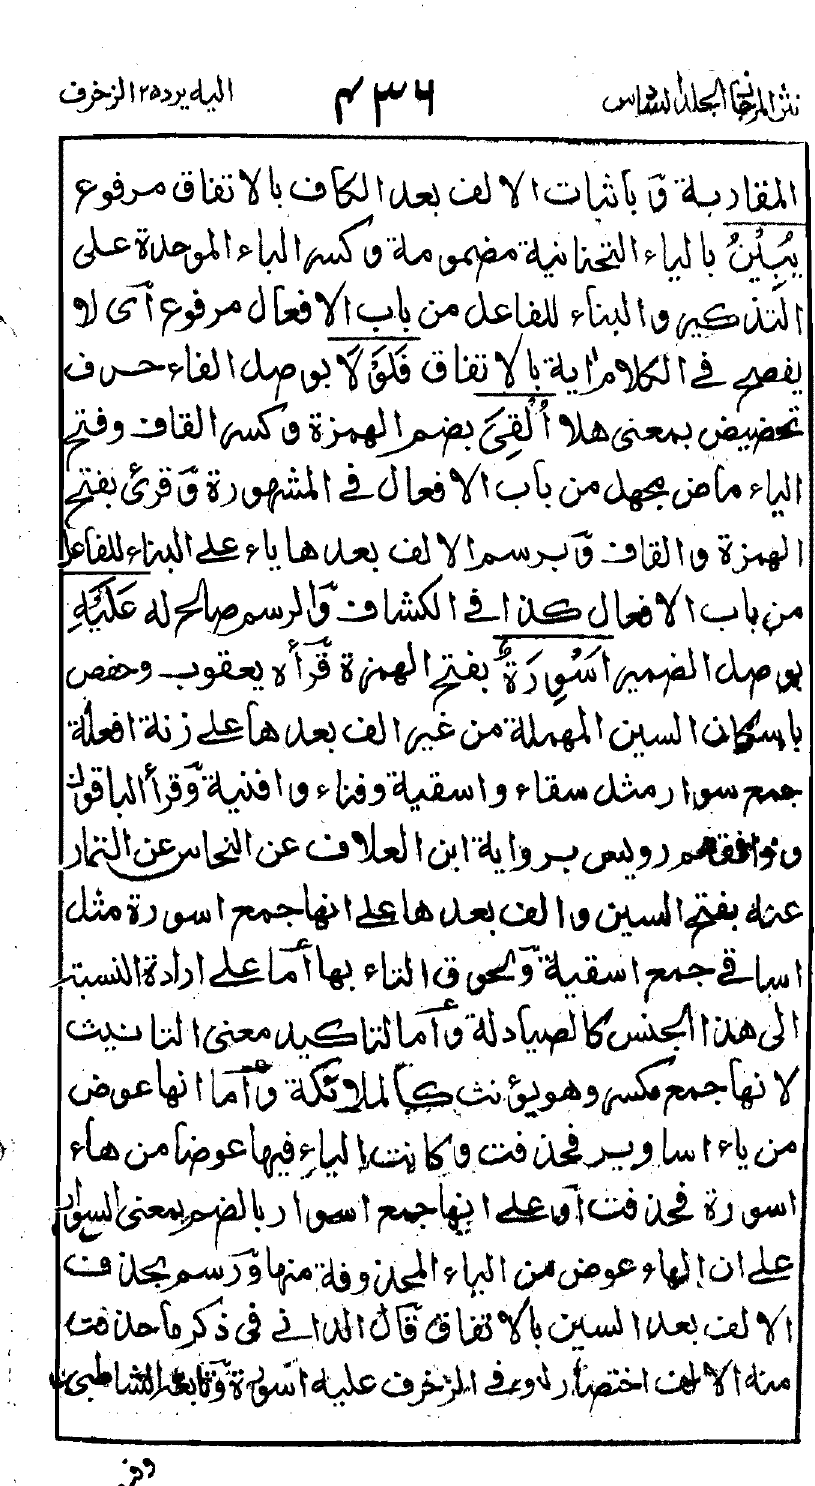 نثر المرجان الجلد السادس ٤٣٦ اليه يرد ٢٥ الزخرف
المقاربة وَباثبات الالف بعد الكاف بالاتفاق مرفوع
يُبِيْنُ بالياء التحتانية مضمومة وكسر الباء الموحدة على
التذكير والبناء للفاعل من باب الافعال مرفوع اى لا
يفصح في الكلام اية بالاتفاق فَلَوْلَا بوصل الفاء حرف
تحضيض بمعنى هلا اُلْقِيَ بضم الهمزة وكسر القاف وفتح
الياء ماض مجهل من باب الافعال في المشهورة وَقرئ بفتح
الهمزة والقاف وَبرسم الالف بعدها ياء على البناء للفاعل
من باب الافعال كذا في الكشاف وَالرسم صالح له عَلَيْهِ
بوصل الضمير اَسْوِرَةٌ بفتح الهمزة قرأه يعقوب وحفص
باسكان السين المهملة من غير الف بعدها على زنة افعلة
جمع سوار مثل سقاء واسقية وفناء وافنية وَقرأ الباقون
ووافقهم رويس برواية ابن العلاف عن النحاس عن التمار
عنه بفتح السين والف بعدها على انها جمع اسورة مثل
اساقي جمع اسقية وَلحوق التاء بها أما على ارادة النسبة
الى هذا الجنس كالصيادلة وَأما لتاكيد معنى التانيث
لانها جمع مكسر وهو يؤنث كالملائكة وَأما انها عوض
من ياء اساوير فحذفت وكانت الياء فيها عوضا من هاء
اسورة فحذفت اَو على انها جمع اسوار بالضم بمعنى السوار
على ان الهاء عوض من الياء المحذوفة منها وَرسم بحذف
الالف بعد السين بالاتفاق قَال الداني في ذكر ما حذفت
منه الالف اختصارا وفي الزخرف عليه اسورة وَتابعه الشاطبي
وفي